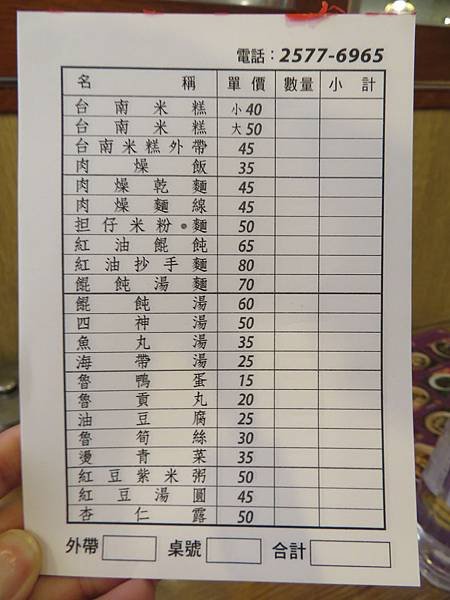 電話：2577-6965
名稱 單價 數量 小計
台南米糕 小40
台南米糕 大50
台南米糕外帶 45
肉燥飯 35
肉燥乾麵 45
肉燥麵線 45
担仔米粉•麵 50
紅油餛飩 65
紅油抄手麵 80
餛飩湯麵 70
餛飩湯 60
四神湯 50
魚丸湯 35
海帶湯 25
魯鴨蛋 15
魯貢丸 20
油豆腐 25
魯筍絲 30
燙青菜 35
紅豆紫米粥 50
紅豆湯圓 45
杏仁露 50
外帶 桌號 合計